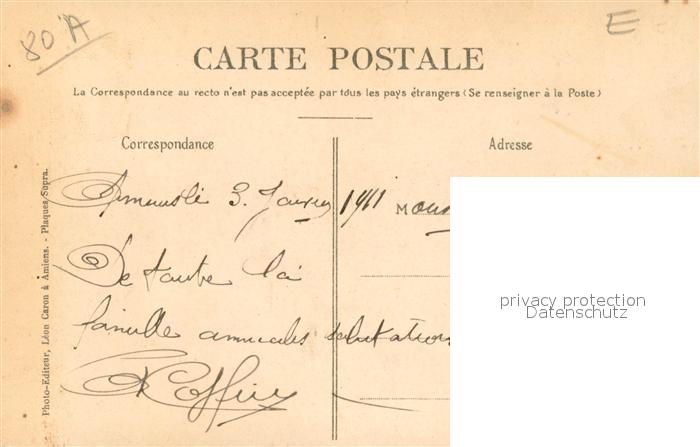 80 A
E
CARTE POSTALE
La Correspondance au recto n'est pas acceptée par tous les pays étrangers (Se renseigner à la Poste)
Correspondance
Adresse
3. 1911
De toute la
famille amicales salutations
privacy protection
Datenschutz
Photo-Editeur, Léon Caron à Amiens. - Plaques Sopra.